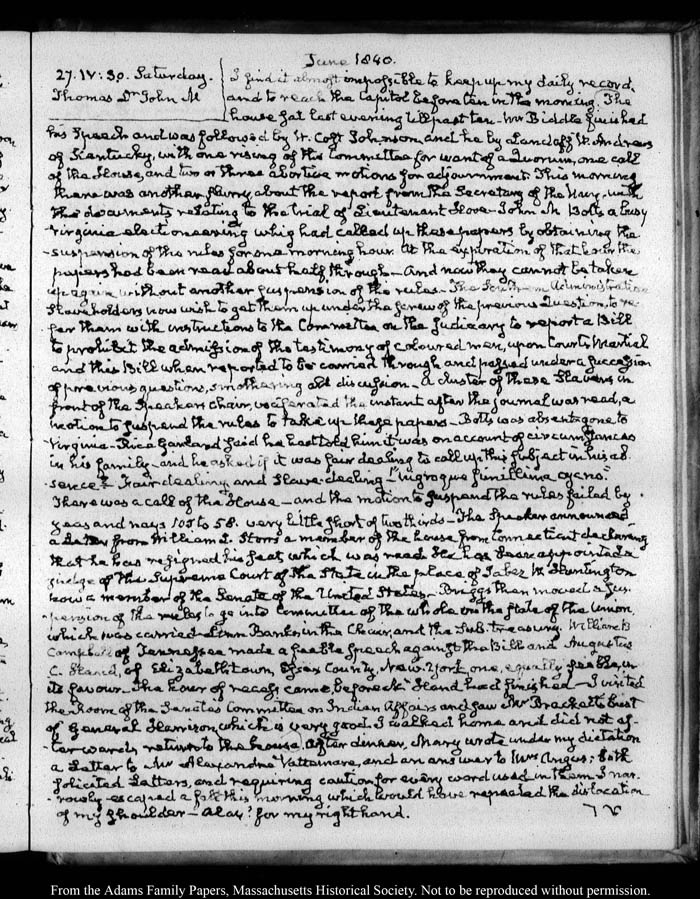 June 1840.
27. IV: 30. Saturday.
Thomas Dr John M
I find it almost impossible to keep up my daily record,
and to reach the Capitol before ten in the morning. The
house sat last evening till past ten - Mr Biddle finished
his Speech and was followed by W. Cost Johnson, and he by Landaff W. Andrews
of Kentucky, with one rising of the Committee for want of a Quorum, one call
of the House, and two or three abortive motions for adjournment. This morning
there was another flurry about the report from the Secretary of the Navy, with
the documents relating to the trial of Lieutenant Hooe - John M Botts a busy
Virginia electioneering whig had called up these papers by obtaining the
suspension of the rules for one morning hour. At the expiration of that hour the
papers had been read about half through - And now they cannot be taken
up again without another suspension of the rules - The Southern Administration
Slave holders now wish to get them up under the screw of the previous Question, to re-
fer them with instructions to the Committee on the Judiciary to report a Bill
to prohibit the admission of the testimony of coloured men, upon Courts Martial
and this Bill when reported to be carried through and passed under a succession
of previous questions, smothering all discussion - A cluster of these Slavers in
front of the Speakers Chair, vociferated the instant after the journal was read, a
motion to suspend the rules to take up these papers - Botts was absent gone to
Virginia - Rice Garland said he had told him it was on account of circumstances
in his family - and he asked if it was fair dealing to call up this subject in his ab-
sence? Fair dealing and Slave-dealing! "nigroque simillima cygno."
There was a call of the House - and the motion to suspend the rules failed by
yeas and nays 105 to 58. very little short of two thirds - The Speaker announced
a Letter from William L. Storrs a member of the house from Connecticut declaring
that he has resigned his seat which was read. He has been appointed a
judge of the Supreme Court of the State in the place of Jabez W. Huntington
now a member of the Senate of the United States - Briggs then moved a sus-
pension of the rules to go into Committee of the whole on the state of the Union,
which was carried - Linn Banks, in the Chair, and the Sub. treasury. William B
Campbell of Tennessee made a feeble speech against the Bill and Augustus
C. Hand, of Elizabethtown, Essex County, New-York one, equally feeble, in
its favour. The hour of recess came, before Hand had finished - I visited
the Room of the Senate's Committee on Indian Affairs and saw Mr Brackett's bust
of General Harrison, which is very good. I walked home and did not af-
terwards return to the house. After dinner, Mary wrote under my dictation
a Letter to Mr Alexandre Vattemare, and an answer to Mrs Angus; both
solicited Letters, and requiring caution for every word used in them. I nar-
rowly escaped a fall this morning which would have repeated the dislocation
of my shoulder - Alas! for my right hand.
From the Adams Family Papers, Massachusetts Historical Society. Not to be reproduced without permission.